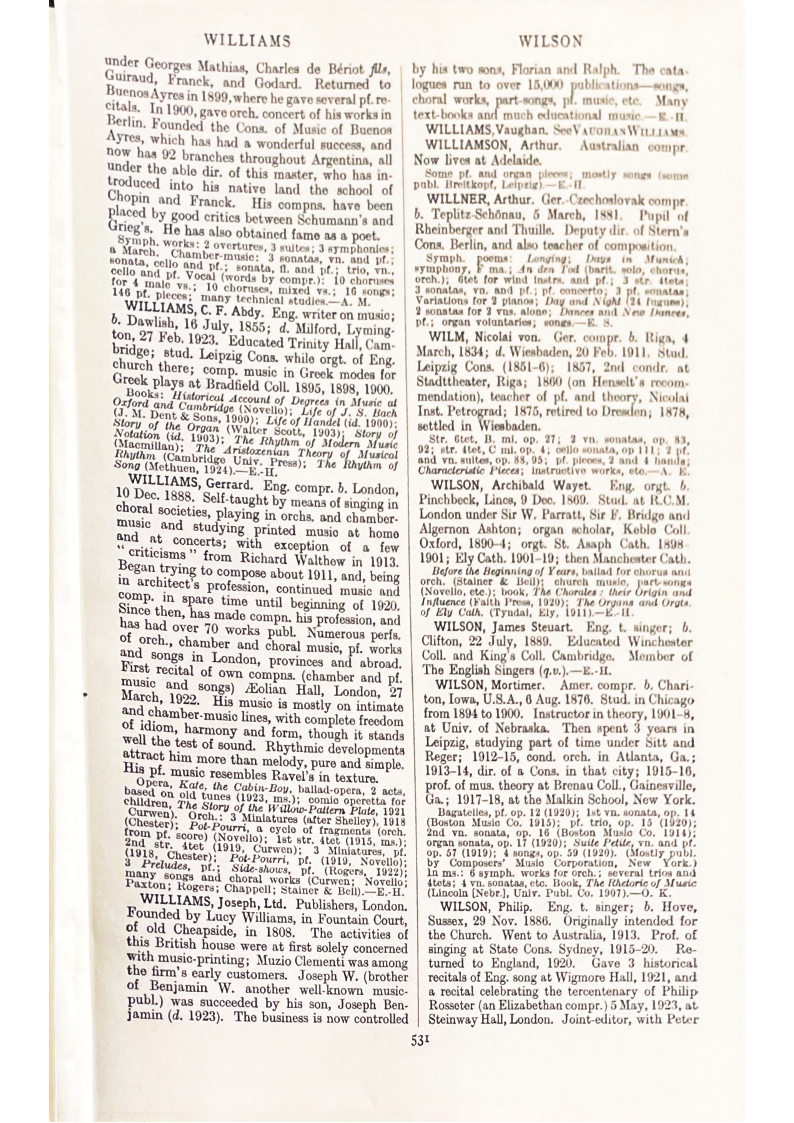 WILLIAMS
WILSON
under Georges Mathias, Charles de Bériot fils,
Guiraud, Franck, and Godard. Returned to
Buenos Ayres in 1899, where he gave several pf. re-
citals. In 1900, gave orch. concert of his works in
Berlin. Founded the Cons. of Music of Buenos
Ayres, which has had a wonderful success, and
now has 92 branches throughout Argentina, all
under the able dir. of this master, who has in-
troduced into his native land the school of
Chopin and Franck. His compns. have been
placed by good critics between Schumann's and
Grieg's. He has also obtained fame as a poet.
Symph. works: 2 overtures, 3 suites; 3 symphonies;
a March. Chamber-music: 3 sonatas, vn. and pf.;
sonata, cello and pf.; sonata, fl. and pf.; trio, vn.,
cello and pf. Vocal (words by compr.): 10 choruses
for 4 male vs.; 10 choruses, mixed vs.; 16 songs;
146 pf. pieces; many technical studies.—A. M.
WILLIAMS, C. F. Abdy. Eng. writer on music;
b. Dawlish, 16 July, 1855; d. Milford, Lyming-
ton, 27 Feb. 1923. Educated Trinity Hall, Cam-
bridge; stud. Leipzig Cons. while orgt. of Eng.
church there; comp. music in Greek modes for
Greek plays at Bradfield Coll. 1895, 1898, 1900.
Books: Historical Account of Degrees in Music at
Oxford and Cambridge (Novello); Life of J. S. Bach
(J. M. Dent & Sons, 1900); Life of Handel (id. 1900);
Story of the Organ (Walter Scott, 1903); Story of
Notation (id. 1903); The Rhythm of Modern Music
(Macmillan); The Aristoxenian Theory of Musical
Rhythm (Cambridge Univ. Press); The Rhythm of
Song (Methuen, 1924).—E.-H.
WILLIAMS, Gerrard. Eng. compr. b. London,
10 Dec. 1888. Self-taught by means of singing in
choral societies, playing in orchs. and chamber-
music and studying printed music at home
and at concerts; with exception of a few
"criticisms" from Richard Walthew in 1913.
Began trying to compose about 1911, and, being
in architect's profession, continued music and
comp. in spare time until beginning of 1920.
Since then, has made compn. his profession, and
has had over 70 works publ. Numerous perfs.
of orch., chamber and choral music, pf. works
and songs in London, provinces and abroad.
First recital of own compns. (chamber and pf.
music and songs) Æolian Hall, London, 27
March, 1922. His music is mostly on intimate
and chamber-music lines, with complete freedom
of idiom, harmony and form, though it stands
well the test of sound. Rhythmic developments
attract him more than melody, pure and simple.
His pf. music resembles Ravel's in texture.
Opera, Kate, the Cabin-Boy, ballad-opera, 2 acts,
based on old tunes (1923, ms.); comic operetta for
children, The Story of the Willow-Pattern Plate, 1921
Curwen). Orch.: 3 Miniatures (after Shelley), 1918
(Chester); Pot-Pourri, a cycle of fragments (orch.
from pf. score) (Novello); 1st str. 4tet (1915, ms.);
2nd str. 4tet (1919, Curwen); 3 Miniatures, pf.
(1918, Chester); Pot-Pourri, pf. (1919, Novello);
3 Preludes, pf.; Side-shows, pf. (Rogers, 1922);
many songs and choral works (Curwen; Novello;
Paxton; Rogers; Chappell; Stainer & Bell).—E.-H.
WILLIAMS, Joseph, Ltd. Publishers, London.
Founded by Lucy Williams, in Fountain Court,
of old Cheapside, in 1808. The activities of
this British house were at first solely concerned
with music-printing; Muzio Clementi was among
the firm's early customers. Joseph W. (brother
of Benjamin W. another well-known music-
publ.) was succeeded by his son, Joseph Ben-
jamin (d. 1923). The business is now controlled
by his two sons, Florian and Ralph. The cata-
logues run to over 15,000 publications—songs,
choral works, part-songs, pf. music, etc. Many
text-books and much educational music.—E.-H.
WILLIAMS, Vaughan. See VAUGHAN WILLIAMS.
WILLIAMSON, Arthur. Australian compr.
Now lives at Adelaide.
Some pf. and organ pieces; mostly songs (some
publ. Breitkopf, Leipzig).—E.-H.
WILLNER, Arthur. Ger.-Czechoslovak compr.
b. Teplitz-Schönau, 5 March, 1881. Pupil of
Rheinberger and Thuille. Deputy dir. of Stern's
Cons. Berlin, and also teacher of composition.
Symph. poems: Longing; Days in Munich;
symphony, F ma.; An den Tod (barit. solo, chorus,
orch.); 6tet for wind instrs. and pf.; 3 str. 4tets;
3 sonatas, vn. and pf.; pf. concerto; 3 pf. sonatas;
Variations for 2 pianos; Day and Night (24 fugues);
2 sonatas for 2 vns. alone; Dances and New Dances,
pf.; organ voluntaries; songs.—E. S.
WILM, Nicolai von. Ger. compr. b. Riga, 4
March, 1834; d. Wiesbaden, 20 Feb. 1911. Stud.
Leipzig Cons. (1851-6); 1857, 2nd condr. at
Stadttheater, Riga; 1860 (on Henselt's recom-
mendation), teacher of pf. and theory, Nicolai
Inst. Petrograd; 1875, retired to Dresden; 1878,
settled in Wiesbaden.
Str. 6tet, B. mi. op. 27; 2 vn. sonatas, op. 83,
92; str. 4tet, C mi. op. 4; cello sonata, op 111; 2 pf.
and vn. suites, op. 88, 95; pf. pieces, 2 and 4 hands;
Characteristic Pieces; instructive works, etc.—A. E.
WILSON, Archibald Wayet. Eng. orgt. b.
Pinchbeck, Lincs, 9 Dec. 1869. Stud. at R.C.M.
London under Sir W. Parratt, Sir F. Bridge and
Algernon Ashton; organ scholar, Keble Coll.
Oxford, 1890-4; orgt. St. Asaph Cath. 1898-
1901; Ely Cath. 1901-19; then Manchester Cath.
Before the Beginning of Years, ballad for chorus and
orch. (Stainer & Bell); church music, part-songs
(Novello, etc.); book, The Chorales: their Origin and
Influence (Faith Press, 1920); The Organs and Orgts.
of Ely Cath. (Tyndal, Ely, 1911).—E.-H.
WILSON, James Steuart. Eng. t. singer; b.
Clifton, 22 July, 1889. Educated Winchester
Coll. and King's Coll. Cambridge. Member of
The English Singers (q.v.).—E.-H.
WILSON, Mortimer. Amer. compr. b. Chari-
ton, Iowa, U.S.A., 6 Aug. 1876. Stud. in Chicago
from 1894 to 1900. Instructor in theory, 1901-8,
at Univ. of Nebraska. Then spent 3 years in
Leipzig, studying part of time under Sitt and
Reger; 1912-15, cond. orch. in Atlanta, Ga.;
1913-14, dir. of a Cons. in that city; 1915-16,
prof. of mus. theory at Brenau Coll., Gainesville,
Ga.; 1917-18, at the Malkin School, New York.
Bagatelles, pf. op. 12 (1920); 1st vn. sonata, op. 14
(Boston Music Co. 1915); pf. trio, op. 15 (1920);
2nd vn. sonata, op. 16 (Boston Music Co. 1914);
organ sonata, op. 17 (1920); Suite Petite, vn. and pf.
op. 57 (1919); 4 songs, op. 59 (1920). (Mostly publ.
by Composers' Music Corporation, New York.)
In ms.: 6 symph. works for orch.; several trios and
4tets; 4 vn. sonatas, etc. Book, The Rhetoric of Music
(Lincoln [Nebr.], Univ. Publ. Co. 1907).—O. K.
WILSON, Philip. Eng. t. singer; b. Hove,
Sussex, 29 Nov. 1886. Originally intended for
the Church. Went to Australia, 1913. Prof. of
singing at State Cons. Sydney, 1915-20. Re-
turned to England, 1920. Gave 3 historical
recitals of Eng. song at Wigmore Hall, 1921, and
a recital celebrating the tercentenary of Philip
Rosseter (an Elizabethan compr.) 5 May, 1923, at
Steinway Hall, London. Joint-editor, with Peter
531